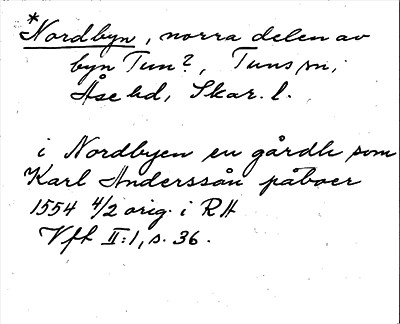 *Nordbyn, norra delen av
byn Tun?, Tuns sn,
Åse hd, Skar. l.
i Nordbyen en gårdh som
Karl Andersson påboer
1554 4/2 orig. i RA
Vfh II:1, s. 36.